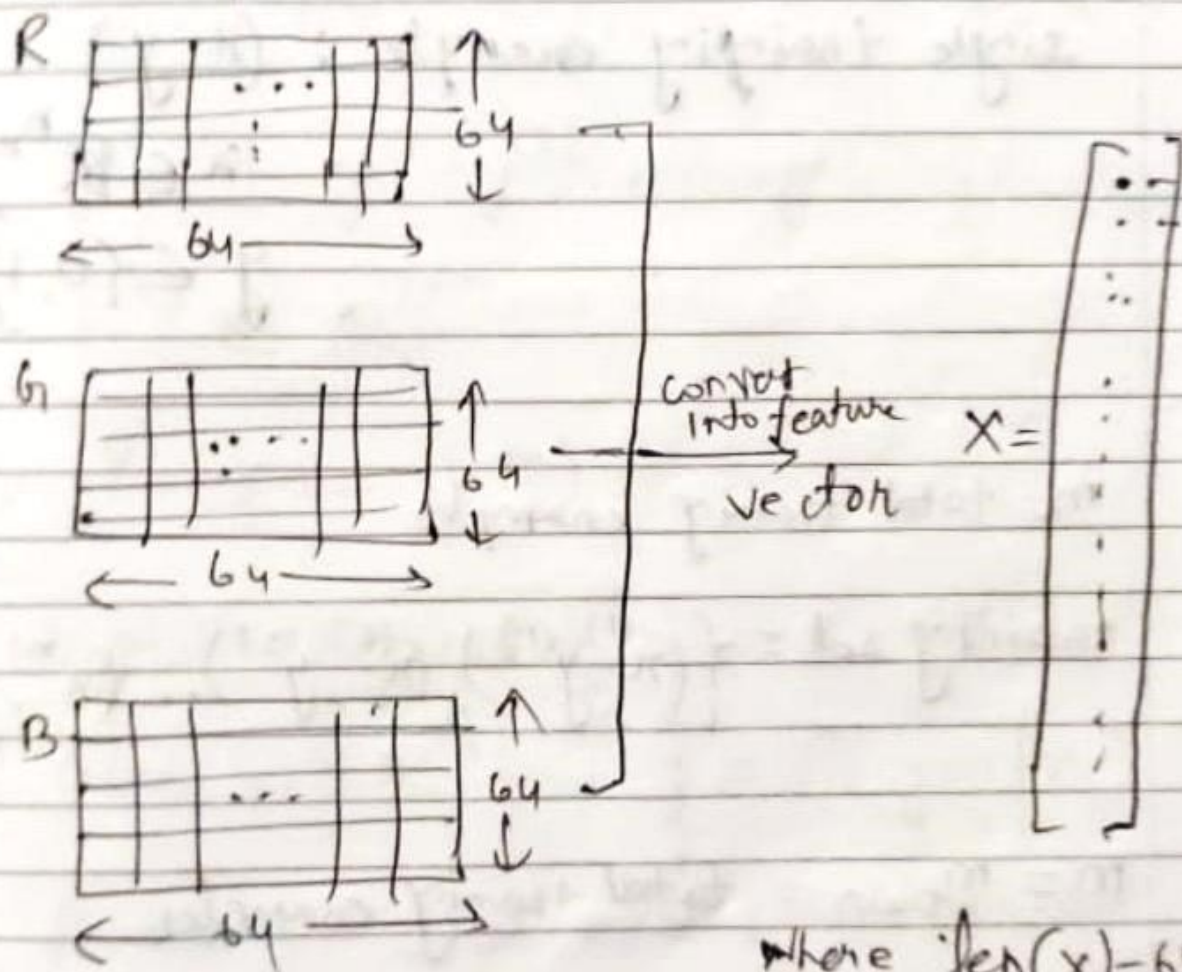 R
...
64
64
G
...
64
64
convert
into feature
vector
X =
B
...
64
64
where len(x)-6